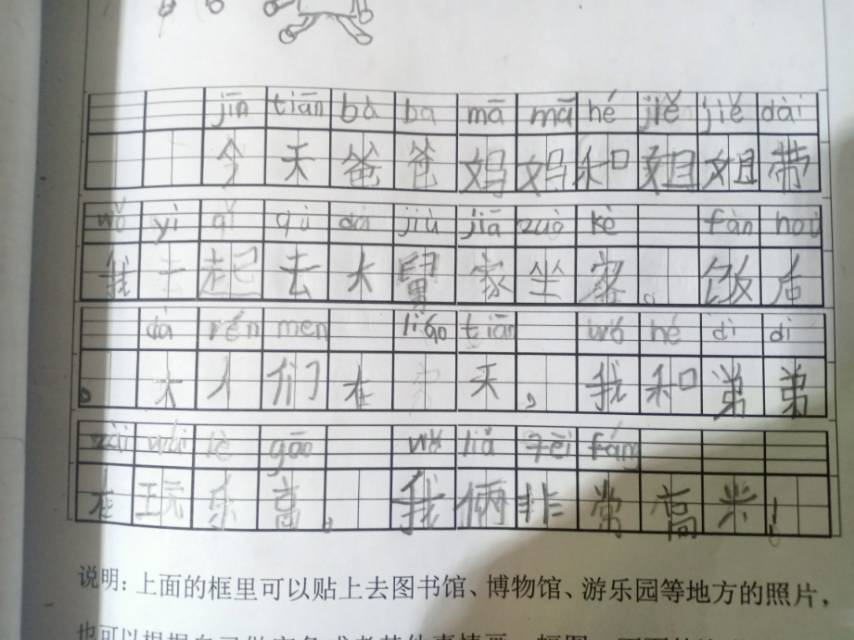 jīn tiān bà ba mā mā hé jiě jiě dài
今天爸爸妈妈和姐姐带
wǒ yì qǐ qù dà jiù jiā zuò kè fàn hou
我一起去大舅家坐客。饭后
dà rén men liáo tiān wǒ hé dì di
，大人们在 天，我和弟弟
zài wán lè gāo wǒ liǎ fēi fáng
在玩乐高。我俩非常高兴！
说明：上面的框里可以贴上去图书馆、博物馆、游乐园等地方的照片，